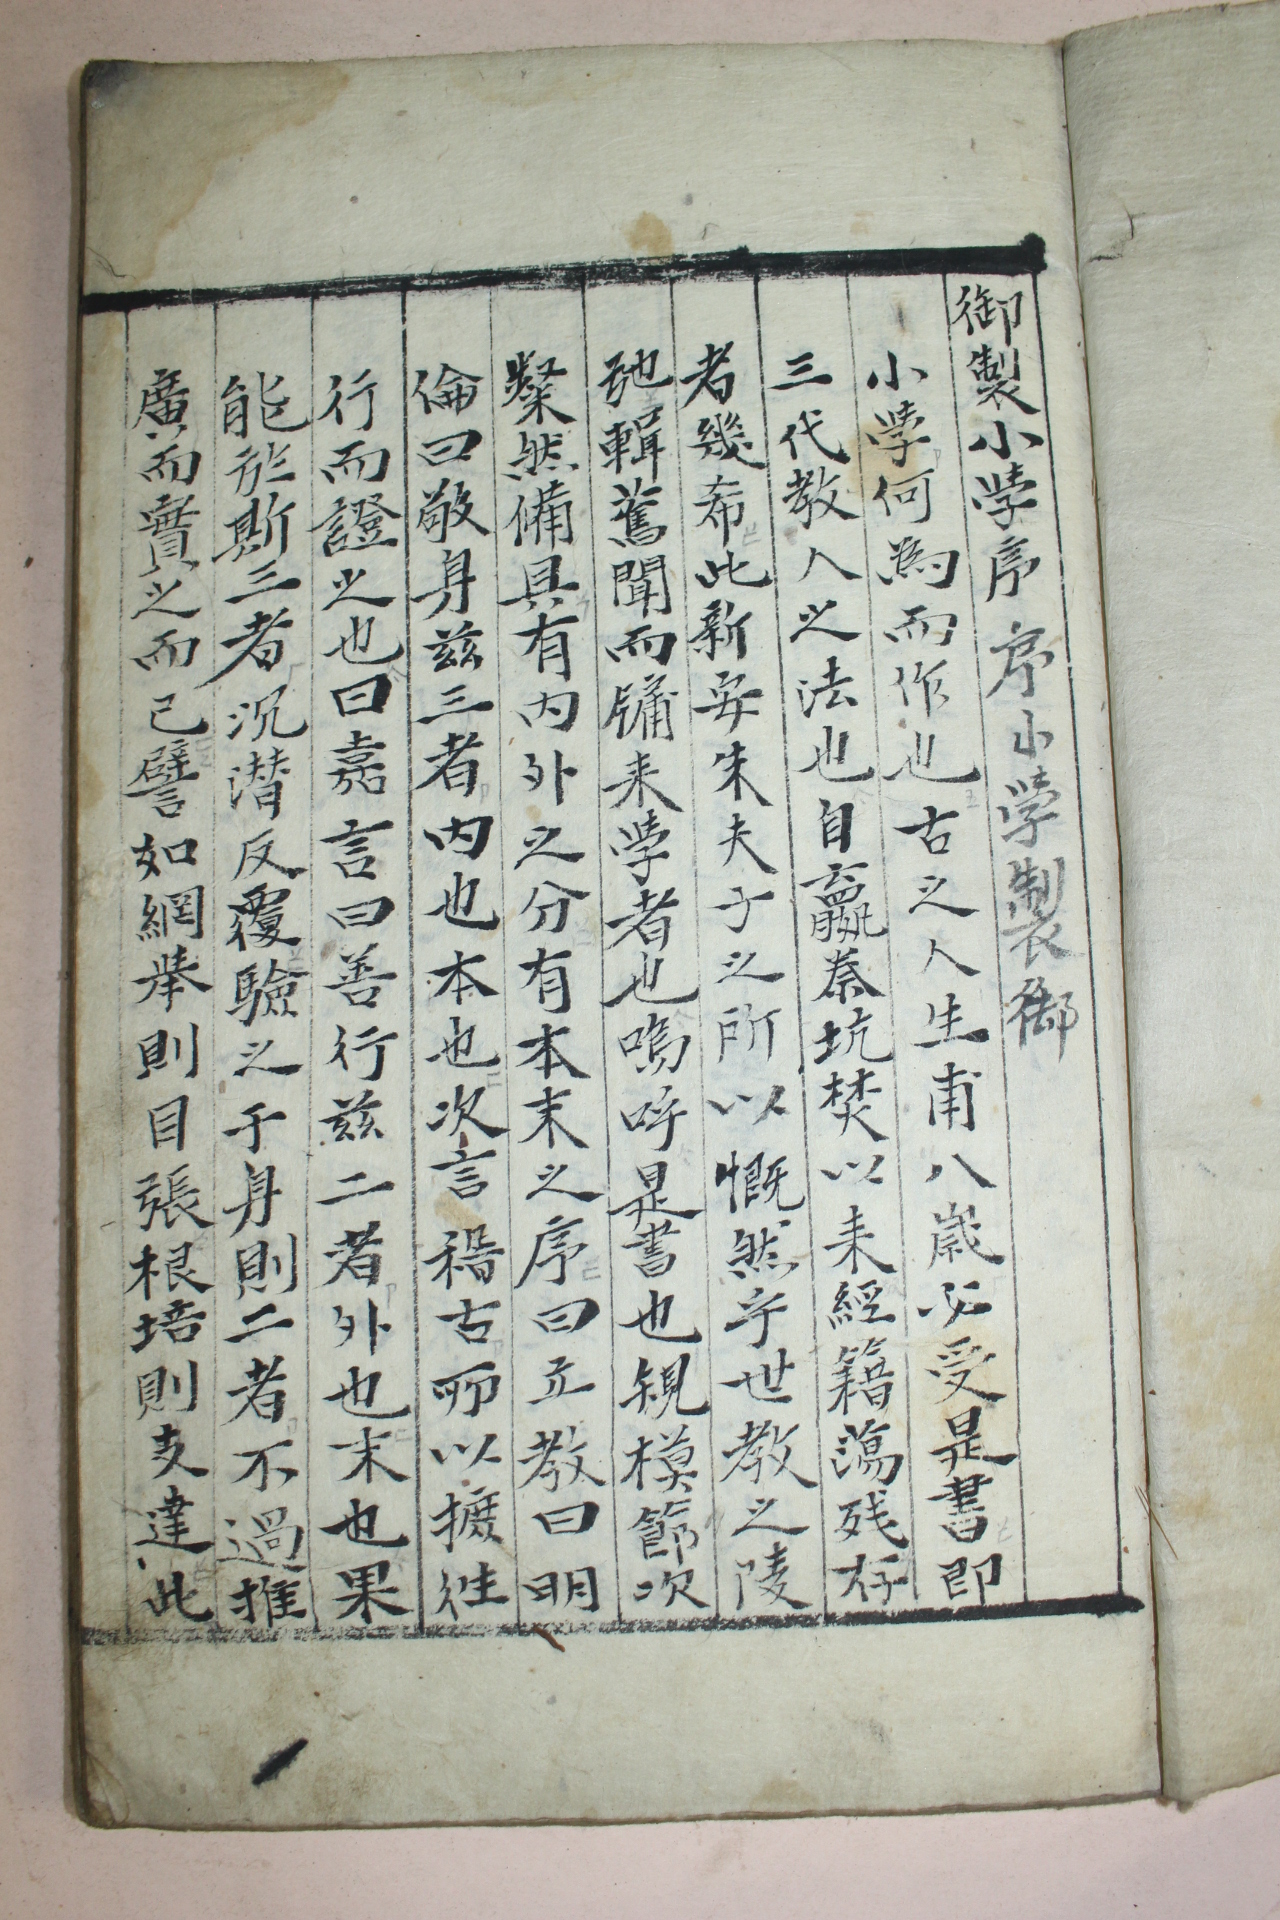 御製小學序 序小學製御
小學何為而作也古之人生甫八歲必受是書即
三代敎人之法也自嬴秦坑焚以来經籍蕩残存
者幾希此新安朱夫子之所以慨然乎世敎之陵
弛輯舊聞而牖来學者也嗚呼是書也規模節次
粲然備具有内外之分有本末之序曰立敎曰明
倫曰敬身兹三者内也本也次言稽古所以摭徃
行而證之也曰嘉言曰善行兹二者外也末也果
能於斯三者沉潜反覆驗之于身則二者不過推
廣而實之而已譬如網举則目張根培則支達此